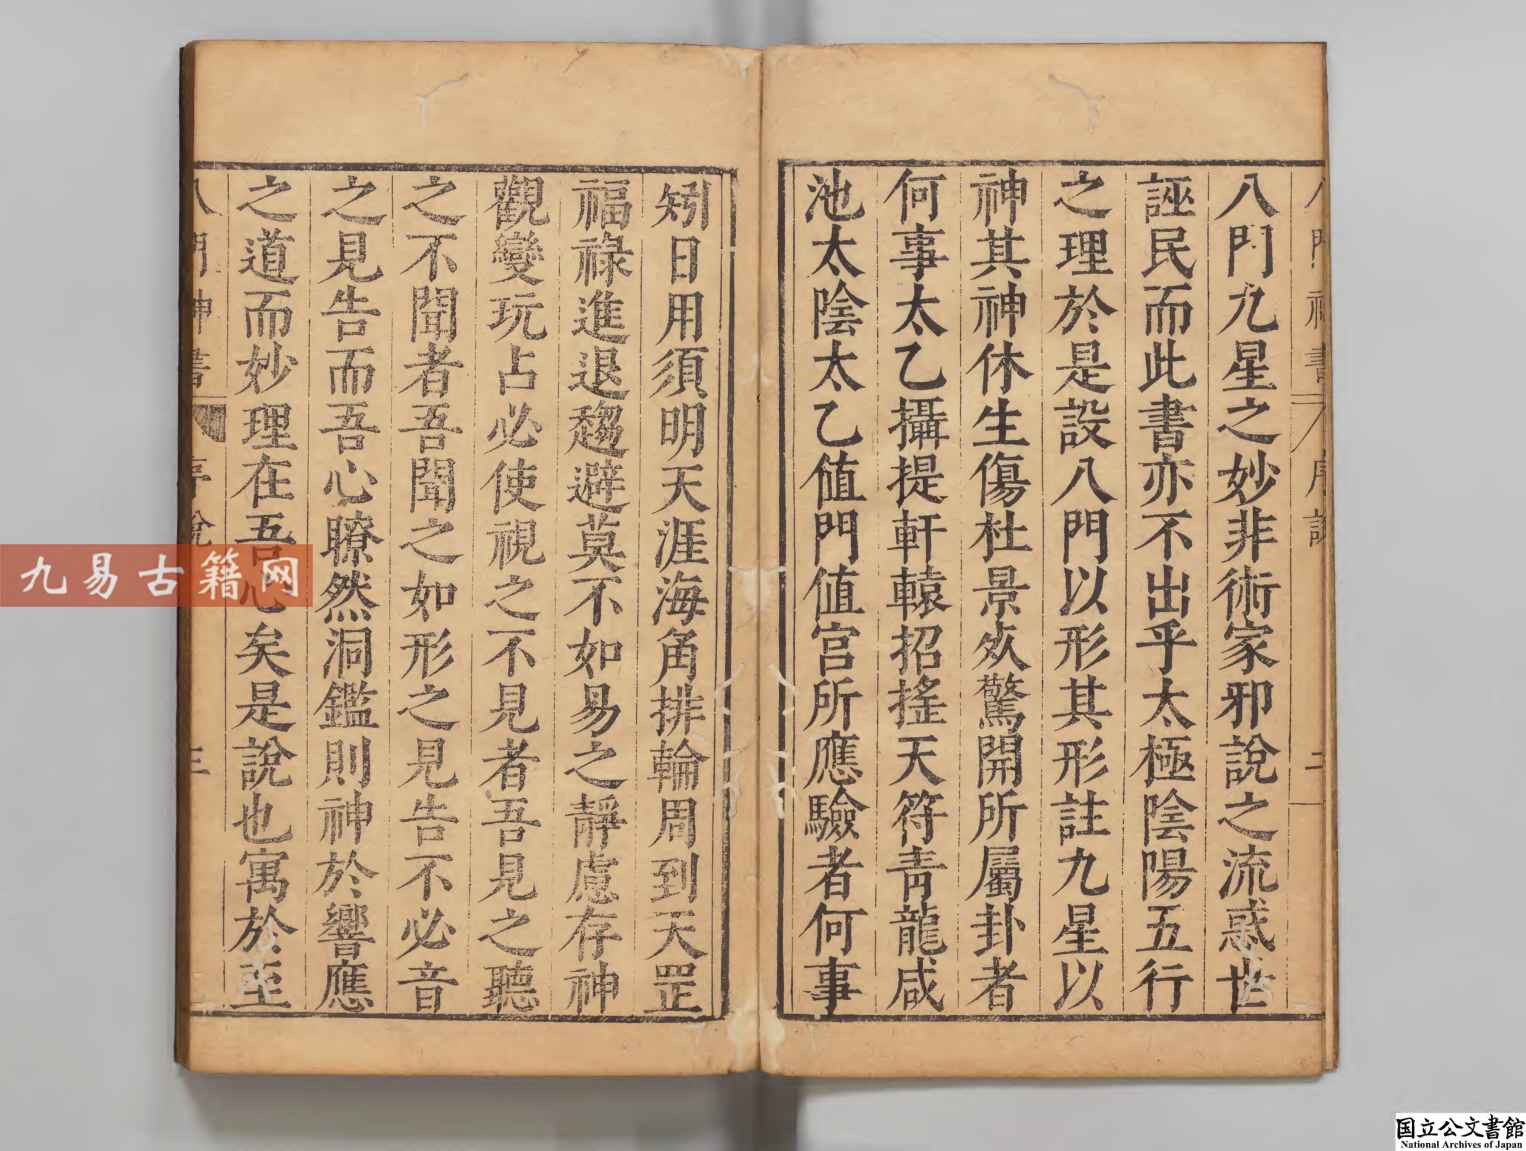 八門九星之妙非術家邪說之流惑世
誣民而此書亦不出乎太極陰陽五行
之理於是設八門以形其形註九星以
神其神休生傷杜景死驚開所屬卦者
何事太乙攝提軒轅招搖天符青龍咸
池太陰太乙値門値宫所應驗者何事
矧日用須明天涯海角排輪周到天罡
福祿進退趨避莫不如易之靜慮存神
觀變玩占必使視之不見者吾見之聽
之不聞者吾聞之如形之見告不必音
之見告而吾心瞭然洞鑑則神於響應
之道而妙理在吾心矣是說也寓於至
八門神書 序說 三
九易古籍网
国立公文書館
National Archives of Japan